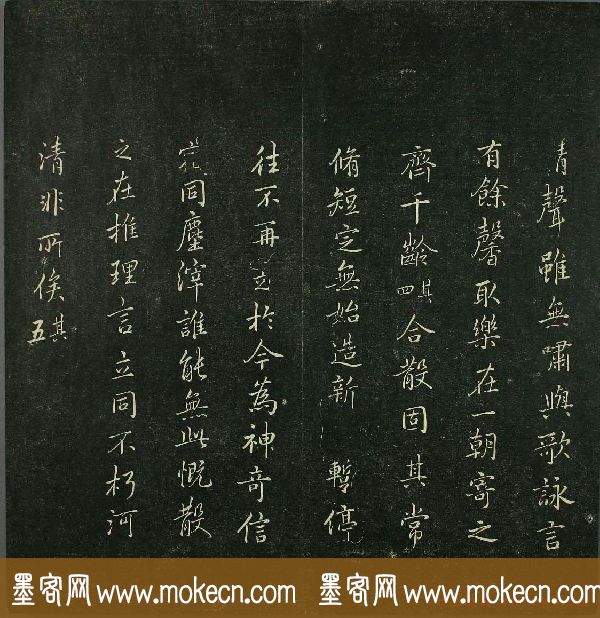 清聲雖無嘯與歌詠言
有餘馨取樂在一朝寄之
齊千齡其四合散固其常
脩短定無始造新暫停
往不再於今為神竒信
同塵滓誰能無此慨散
之在推理言立同不朽河
清非所俟其五
墨客网 www.mokecn.com 墨客网 www.mokecn.com